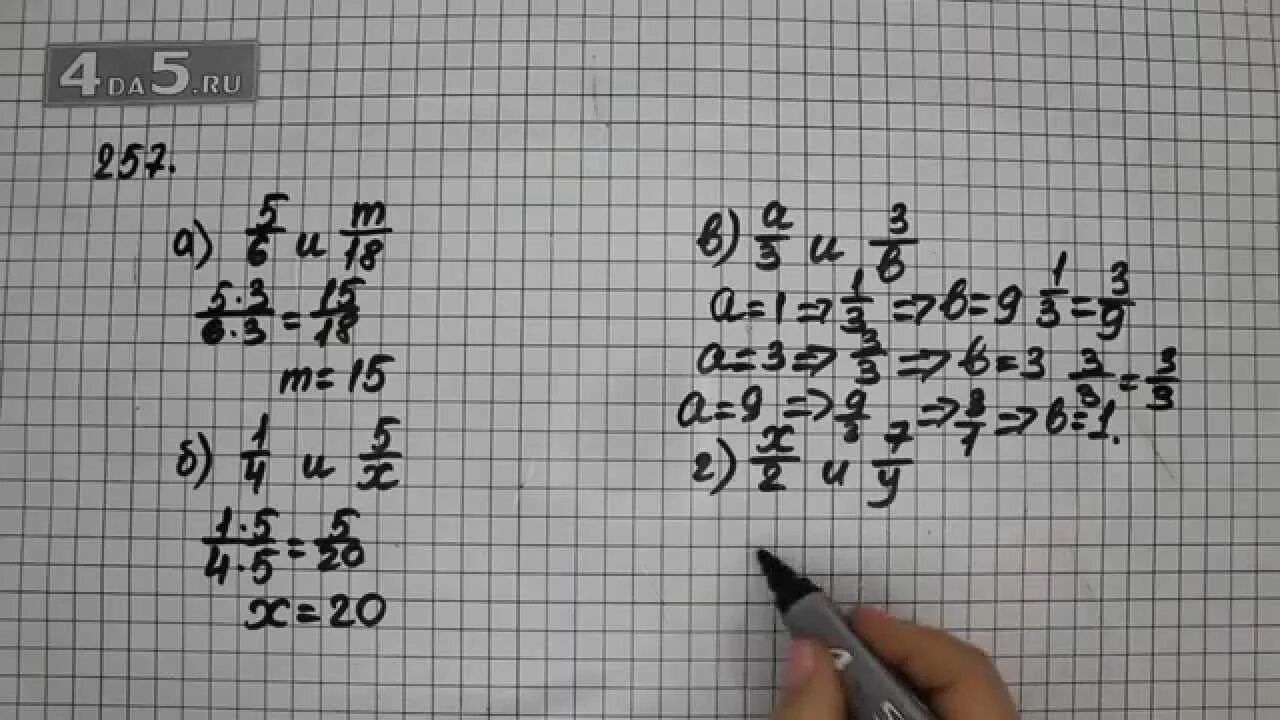 4DA5.RU
257.
а) 5/6 и m/18
5·3/6·3 = 15/18
m = 15
б) 1/4 и 5/x
1·5/4·5 = 5/20
x = 20
в) a/3 и 3/b
a = 1 => 1/3 => b = 9 1/3 = 3/9
a = 3 => 3/3 => b = 3 3/3 = 3/3
a = 9 => 9/3 => 3/1 => b = 1.
г) x/2 и 7/y